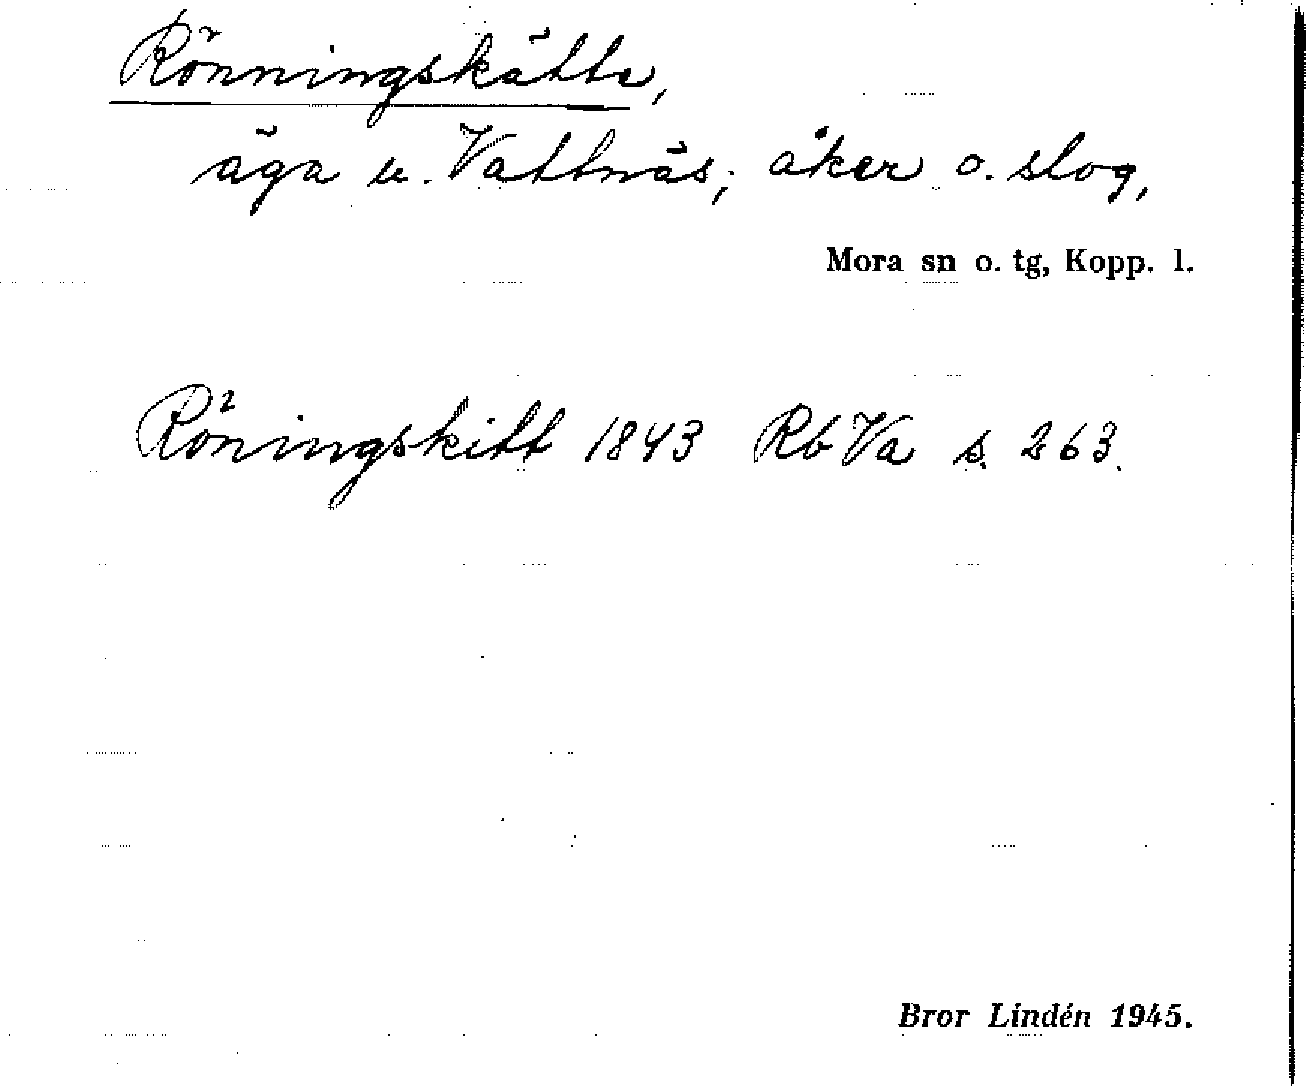 Rönningskätta,
äga u. Vattnäs; åker o. slog,
Mora sn o. tg, Kopp. l.
Röningskitt 1843 Rb Va s. 263.
Bror Lindén 1945.